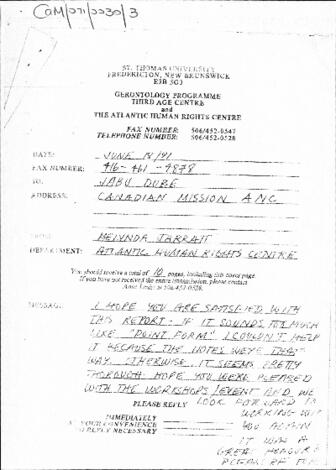 CAM/071/0030/3
ST. THOMAS UNIVERSITY
FREDERICTON, NEW BRUNSWICK
E3B 5G3
GERONTOLOGY PROGRAMME
THIRD AGE CENTRE
and
THE ATLANTIC HUMAN RIGHTS CENTRE
FAX NUMBER: 506/452-0547
TELEPHONE NUMBER: 506/452-0528
DATE: JUNE
FAX NUMBER: 416-461-9878
TO: JABU DUBE
ADDRESS: CANADIAN MISSION ANC
FROM: HELYNDA JARRATT
DEPARTMENT: ATLANTIC HUMAN RIGHTS CENTRE
You should receive a total of 10 pages, including this cover page.
If you have not received the entire transmission, please contact
at 506/452-0528.
MESSAGE: I HOPE YOU ARE SATISFIED WITH
THIS REPORT. IF IT SOUNDS TOO MUCH
LIKE "POINT FORM" I COULDN'T HELP
IT BECAUSE THE NOTES WERE THAT
WAY. OTHERWISE, IT SEEMS PRETTY
THOROUGH. HOPE YOU WERE PLEASED
WITH THE WORKSHOPS/EVENT AND WE
LOOK FORWARD TO
PLEASE REPLY WORKING WITH
IMMEDIATELY YOU AGAIN
AT YOUR CONVENIENCE IT WAS A
NO REPLY NECESSARY GREAT